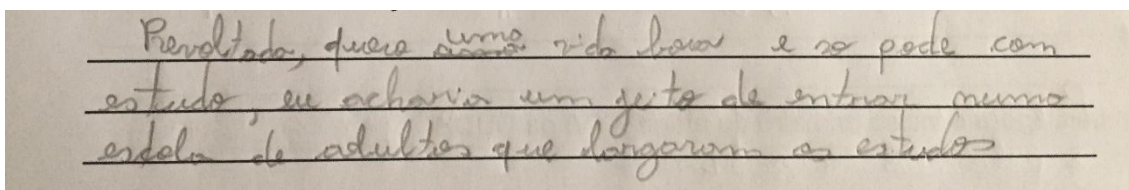 Revoltada, quero uma vida boua e so pode com
estudo, eu acharia um jeito de entrar numa
escola de adultos que largaram os estudos